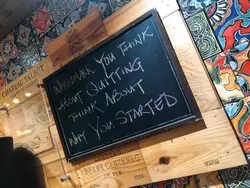 WHENEVER YOU THINK
ABOUT QUITTING
THINK ABOUT
WHY YOU STARTED
CHATEAU FALFAS